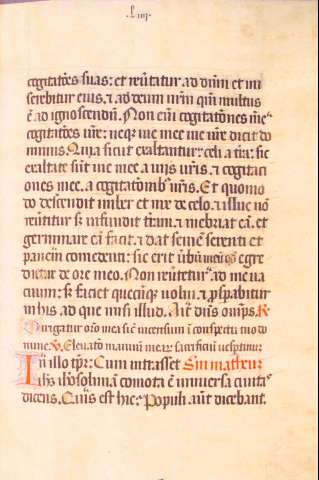 .Liiij.
cogitatões suas: et reũtatur ad dñm et mi
serebitur eius, ⁊ ad deum nr̃m qm̃ multus
ẽ ad ignoscendũ. Non eñi cogitatõnes mee
cogitatões ur̃e: neqꝫ uie mee uie ur̃e dicit do
minus. Quia sicut exaltantur celi a tr̃a: sic
exaltate sũt uie mee a uiis ur̃is, ⁊ cogitaci
ones mee, a cogitatõnibꝫ ur̃is. Et quomo
do descendit imber et nix de celo, ⁊ illuc nõ
reũtitur sꝫ infundit tr̃am, ⁊ inebriat eã, et
germinare eã facit, ⁊ dat semẽ serenti et
panem comedenti: sic erit ũbũ meũ qꝫ egre
dietur de ore meo. Non reũtetur ad me ua
cuum: sꝫ faciet quecũqꝫ uolui, ⁊ ꝓsperabitur
in his ad que misi illud. Ait dñus om̃ps. R
Dirigatur or̃o mea sic̃ incensum ĩ conspectu tuo do
mine. V. Eleuatio manuũ meaꝝ sacrificiũ uesptinum.
In illo tpr̃: Cum intrasset Sm̃ matheum
ihs iherosolim̃, ĩ comota ẽ uniuersa ciuitas
dicens. Quis est hic? Populi aut̃ dicebant.